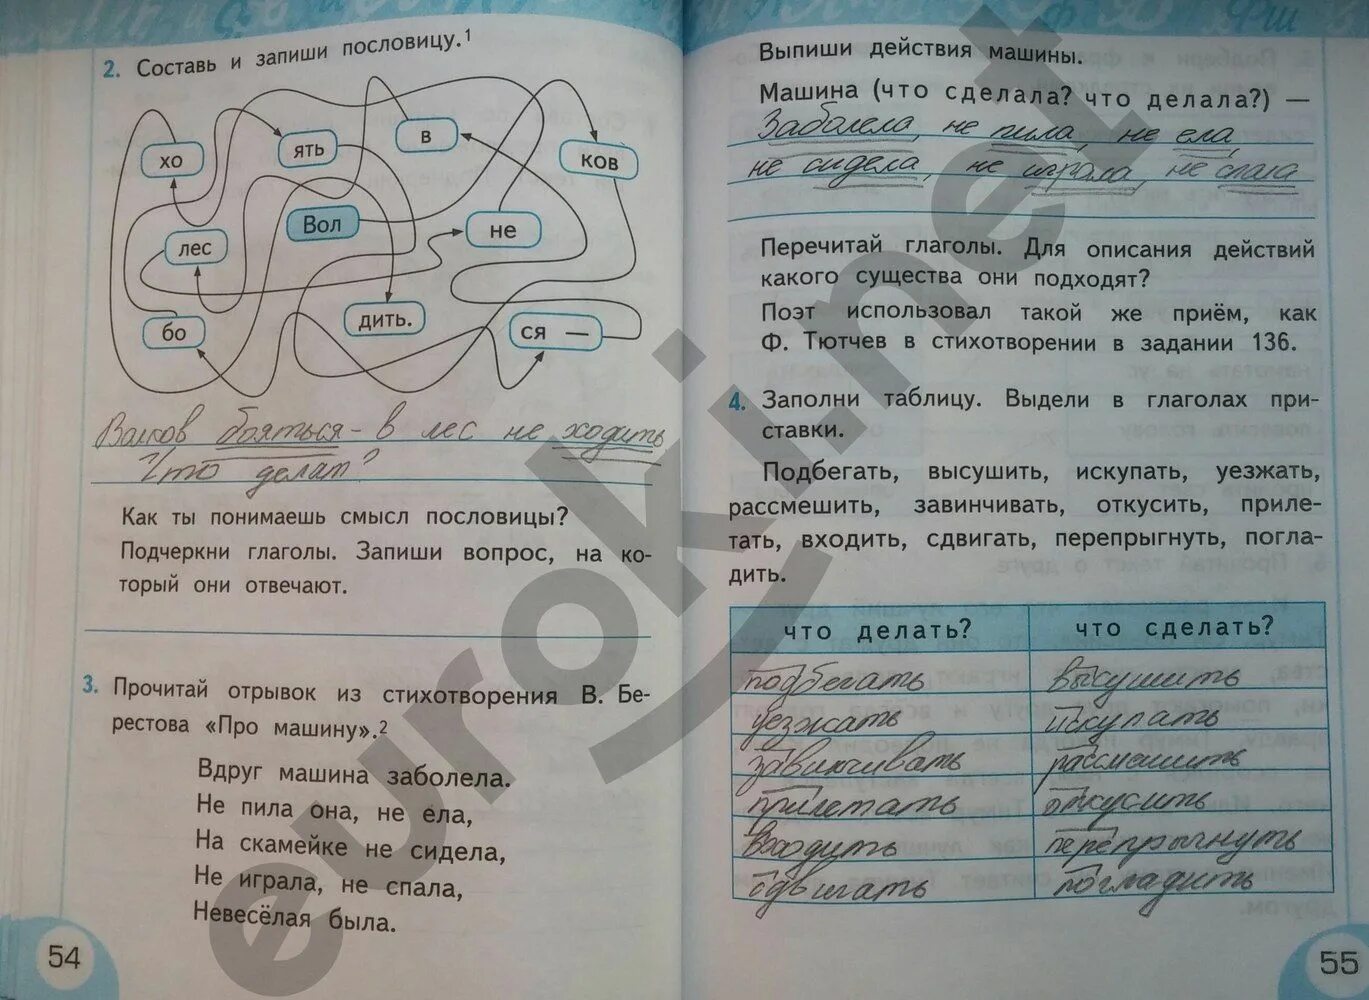 2. Составь и запиши пословицу.¹
хо
ять
в
ков
Вол
лес
не
бо
дить.
ся —
Волков бояться - в лес не ходить
Что делат?
Как ты понимаешь смысл пословицы?
Подчеркни глаголы. Запиши вопрос, на ко-
торый они отвечают.
3. Прочитай отрывок из стихотворения В. Бе-
рестова «Про машину».²
Вдруг машина заболела.
Не пила она, не ела,
На скамейке не сидела,
Не играла, не спала,
Невесёлая была.
54
Выпиши действия машины.
Машина (что сделала? что делала?) —
Заболела, не пила, не ела,
не сидела, не играла, не спала
Перечитай глаголы. Для описания действий
какого существа они подходят?
Поэт использовал такой же приём, как
Ф. Тютчев в стихотворении в задании 136.
4. Заполни таблицу. Выдели в глаголах при-
ставки.
Подбегать, высушить, искупать, уезжать,
рассмешить, завинчивать, откусить, приле-
тать, входить, сдвигать, перепрыгнуть, погла-
дить.
что делать? что сделать?
подбегать высушить
уезжать искупать
завинчивать рассмешить
прилетать откусить
входить перепрыгнуть
сдвигать погладить
55
euroki.net